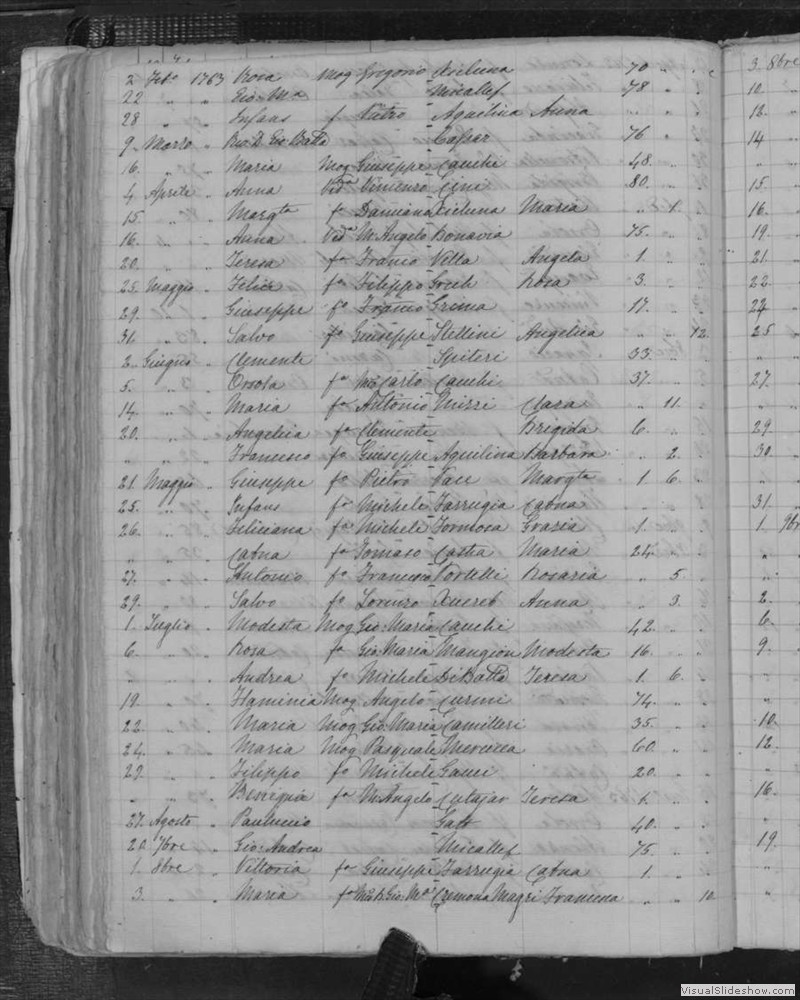 2 Feb° 1763 Rosa Mog Gregorio Xicluna 70 " "
22 " " Gio: Ma Micallef 78 " "
28 " " Infans f Pietro Aquilina Anna " "
9 Marzo " Gio Batta 76 " "
16. " " Maria Mog Giuseppe Cauchi 48 " "
4 Aprile " Anna Veda Vincenzo Cini 80. " "
15. " " Margta fa Damiano Xicluna Maria " 1. "
16. " " Anna Veda M: Angelo Bonavia 75. " "
20. " " Teresa fa Franco Vella Angela 1. " "
25. Maggio " Felice fa Filippo Grech Rosa 3. " "
29. " " Giuseppe fo Franco Grima 17. " "
31. " " Salvo fo Giuseppe Stellini Angelica " " 12.
2. Giugno " Clemente Spiteri 33. " "
5. " " Orsola fa Carlo Cauchi 37. " "
14. " " Maria fa Antonio Mizzi Clara " 11. "
20. " " Angelica fa Clemente Brigida 6. " "
" " " Francesco fo Giuseppe Aquilina Barbara " 2. "
21. Maggio " Giuseppe fo Pietro Pace Margta 1 6. "
25. " " Infans fo Michele Farrugia Catna " " "
26. " " Feliciana fa Michele Formosa Grazia 1. " "
" " " Catna fa Tomaso Casta Maria 24. " "
27. " " Antonio fo Francesco Portelli Rosaria " 5. "
29. " " Salvo fo Lorenzo Xuereb Anna " 3. "
1. Luglio " Modesta Mog Gio: Maria Cauchi 42. " "
6. " " Rosa fa Gio Maria Mangion Modesta 16. " "
" " " Andrea fo Michele DiBatta Teresa 1. 6. "
19. " " Flaminia Mog Angelo Curmi 74. " "
22. " " Maria Mog Gio: Maria Camilleri 35. " "
24. " " Maria Mog Pasquale Mercieca 60. " "
29. " " Filippo fo Michele Gauci 20. " "
" " " Benigna fa M: Angelo Cutajar Teresa 1. " "
27. Agosto " Gatt 40. " "
20. 7bre " Gio: Andrea Micallef 75. " "
1. 8bre " Vittoria fa Giuseppe Farrugia Catna 1. " "
3. " " Maria fa Gio: Ma Cremona Magri Francesca " " 10
3. 8bre
10.
13.
14
"
15.
16.
19.
21.
22.
24
25
"
27.
"
29.
30.
"
31.
1. 9bre
"
"
2.
6.
9.
"
"
10.
12.
"
16.
"
19.
"
"
VisualSlideshow.com